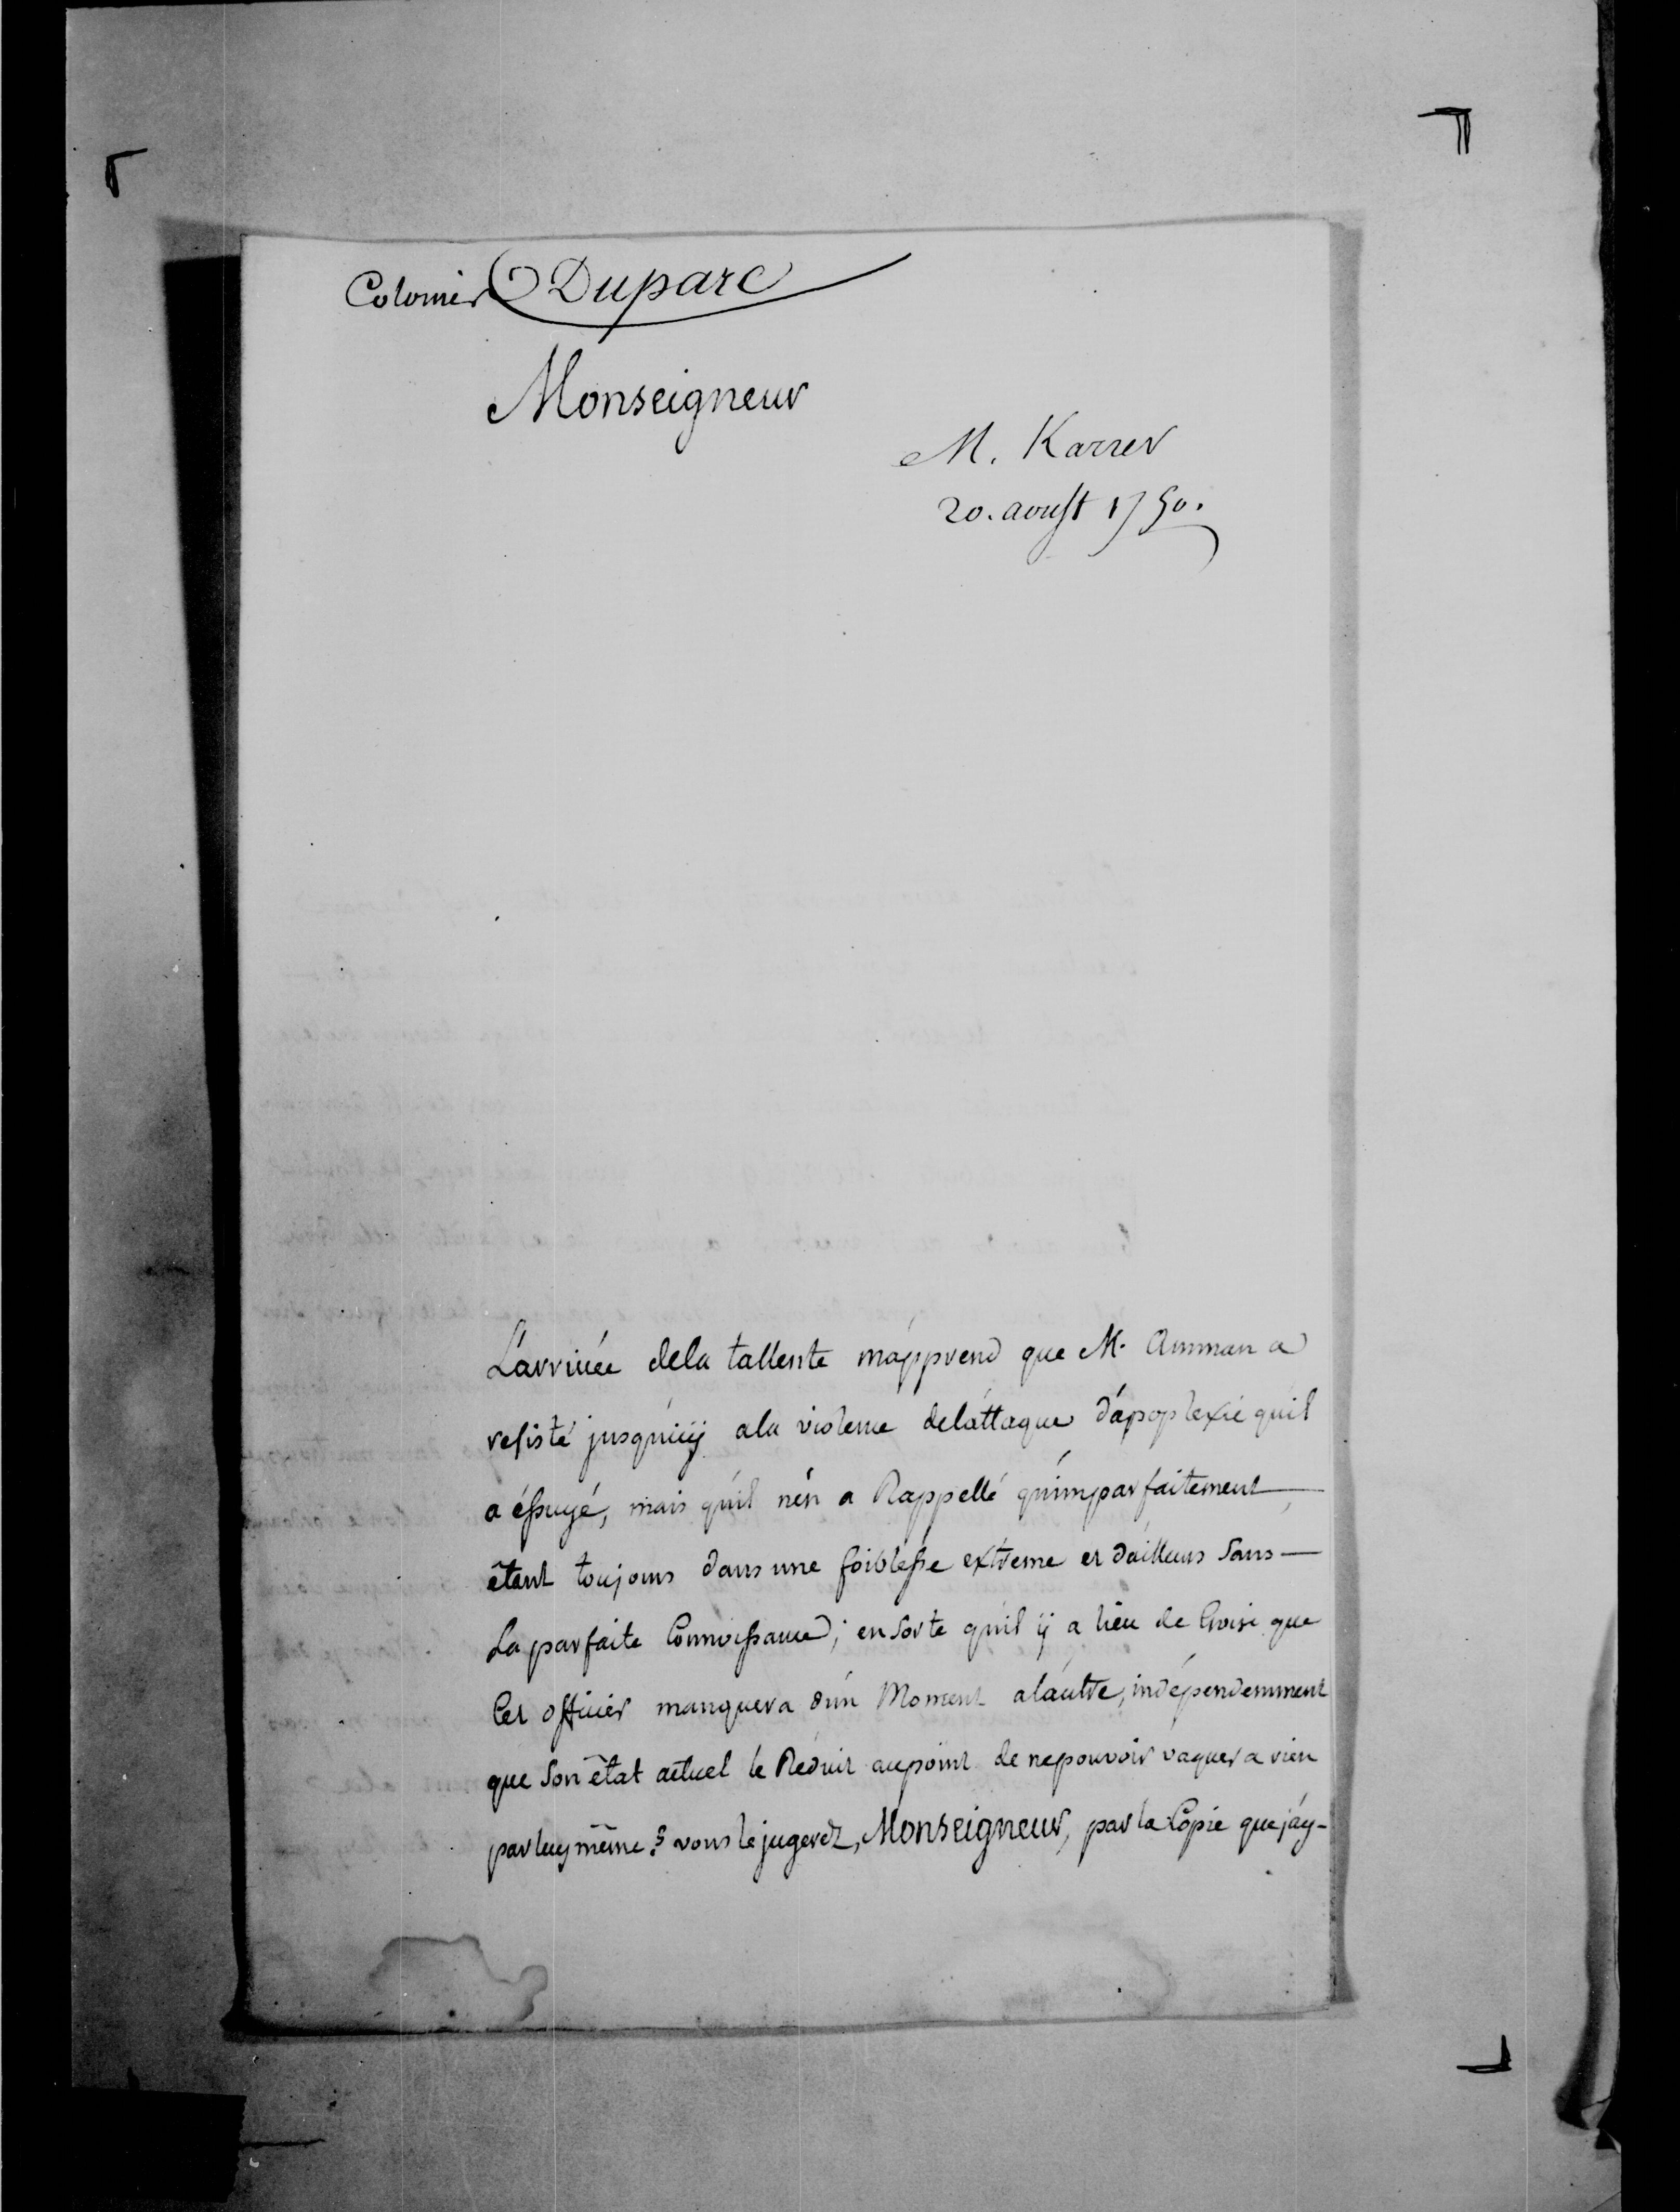 Colonies Duparc
Monseigneur
M. Karrer
20. aoust 1750.
L'arrivée dela tallente m'apprend que M. Amman a
resisté jusqu'icÿ ala violence delattaque d'apoplexie qu'il
a éssuyé, mais qu'il nén a Rappellé qu'imparfaitement
étant toujours dans une foiblesse extreme et d'ailleurs sans
la parfaite Connoissance; ensorte qu'il ÿ a lieu de Croire que
Cet officier manquera d'un Moment alautre, indépendemment
que son état actuel le Reduit aupoint de nepouvoir vaquer a rien
parluy même: vous le jugerez, Monseigneur, par la Copie que j'ay